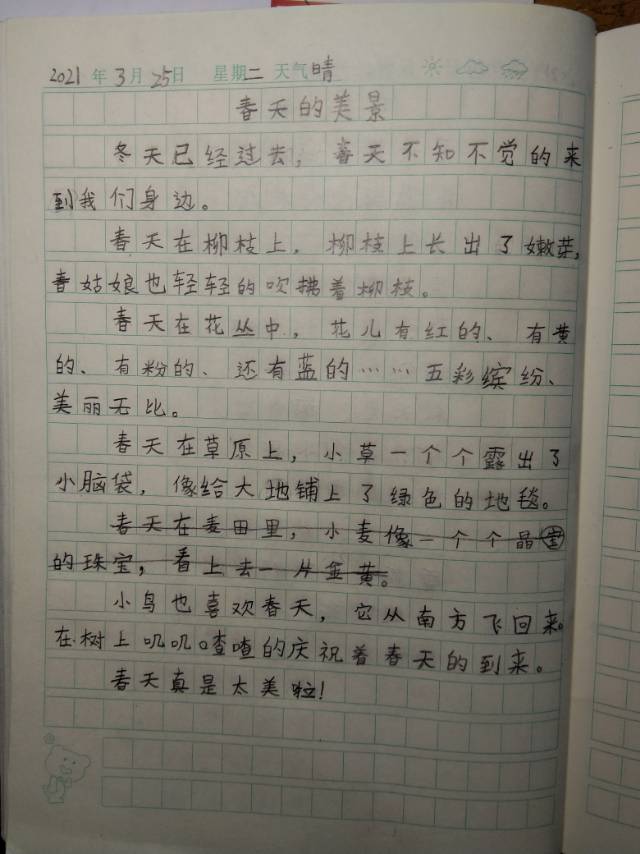 2021年3月25日 星期二 天气晴
春天的美景
冬天已经过去，春天不知不觉的来
到我们身边。
春天在柳枝上，柳枝上长出了嫩芽，
春姑娘也轻轻的吹拂着柳枝。
春天在花丛中，花儿有红的、有黄
的、有粉的、还有蓝的……五彩缤纷、
美丽无比。
春天在草原上，小草一个个露出了
小脑袋，像给大地铺上了绿色的地毯。
春天在麦田里，小麦像一个个晶莹
的珠宝，看上去一片金黄。
小鸟也喜欢春天，它从南方飞回来。
在树上叽叽喳喳的庆祝着春天的到来。
春天真是太美啦！